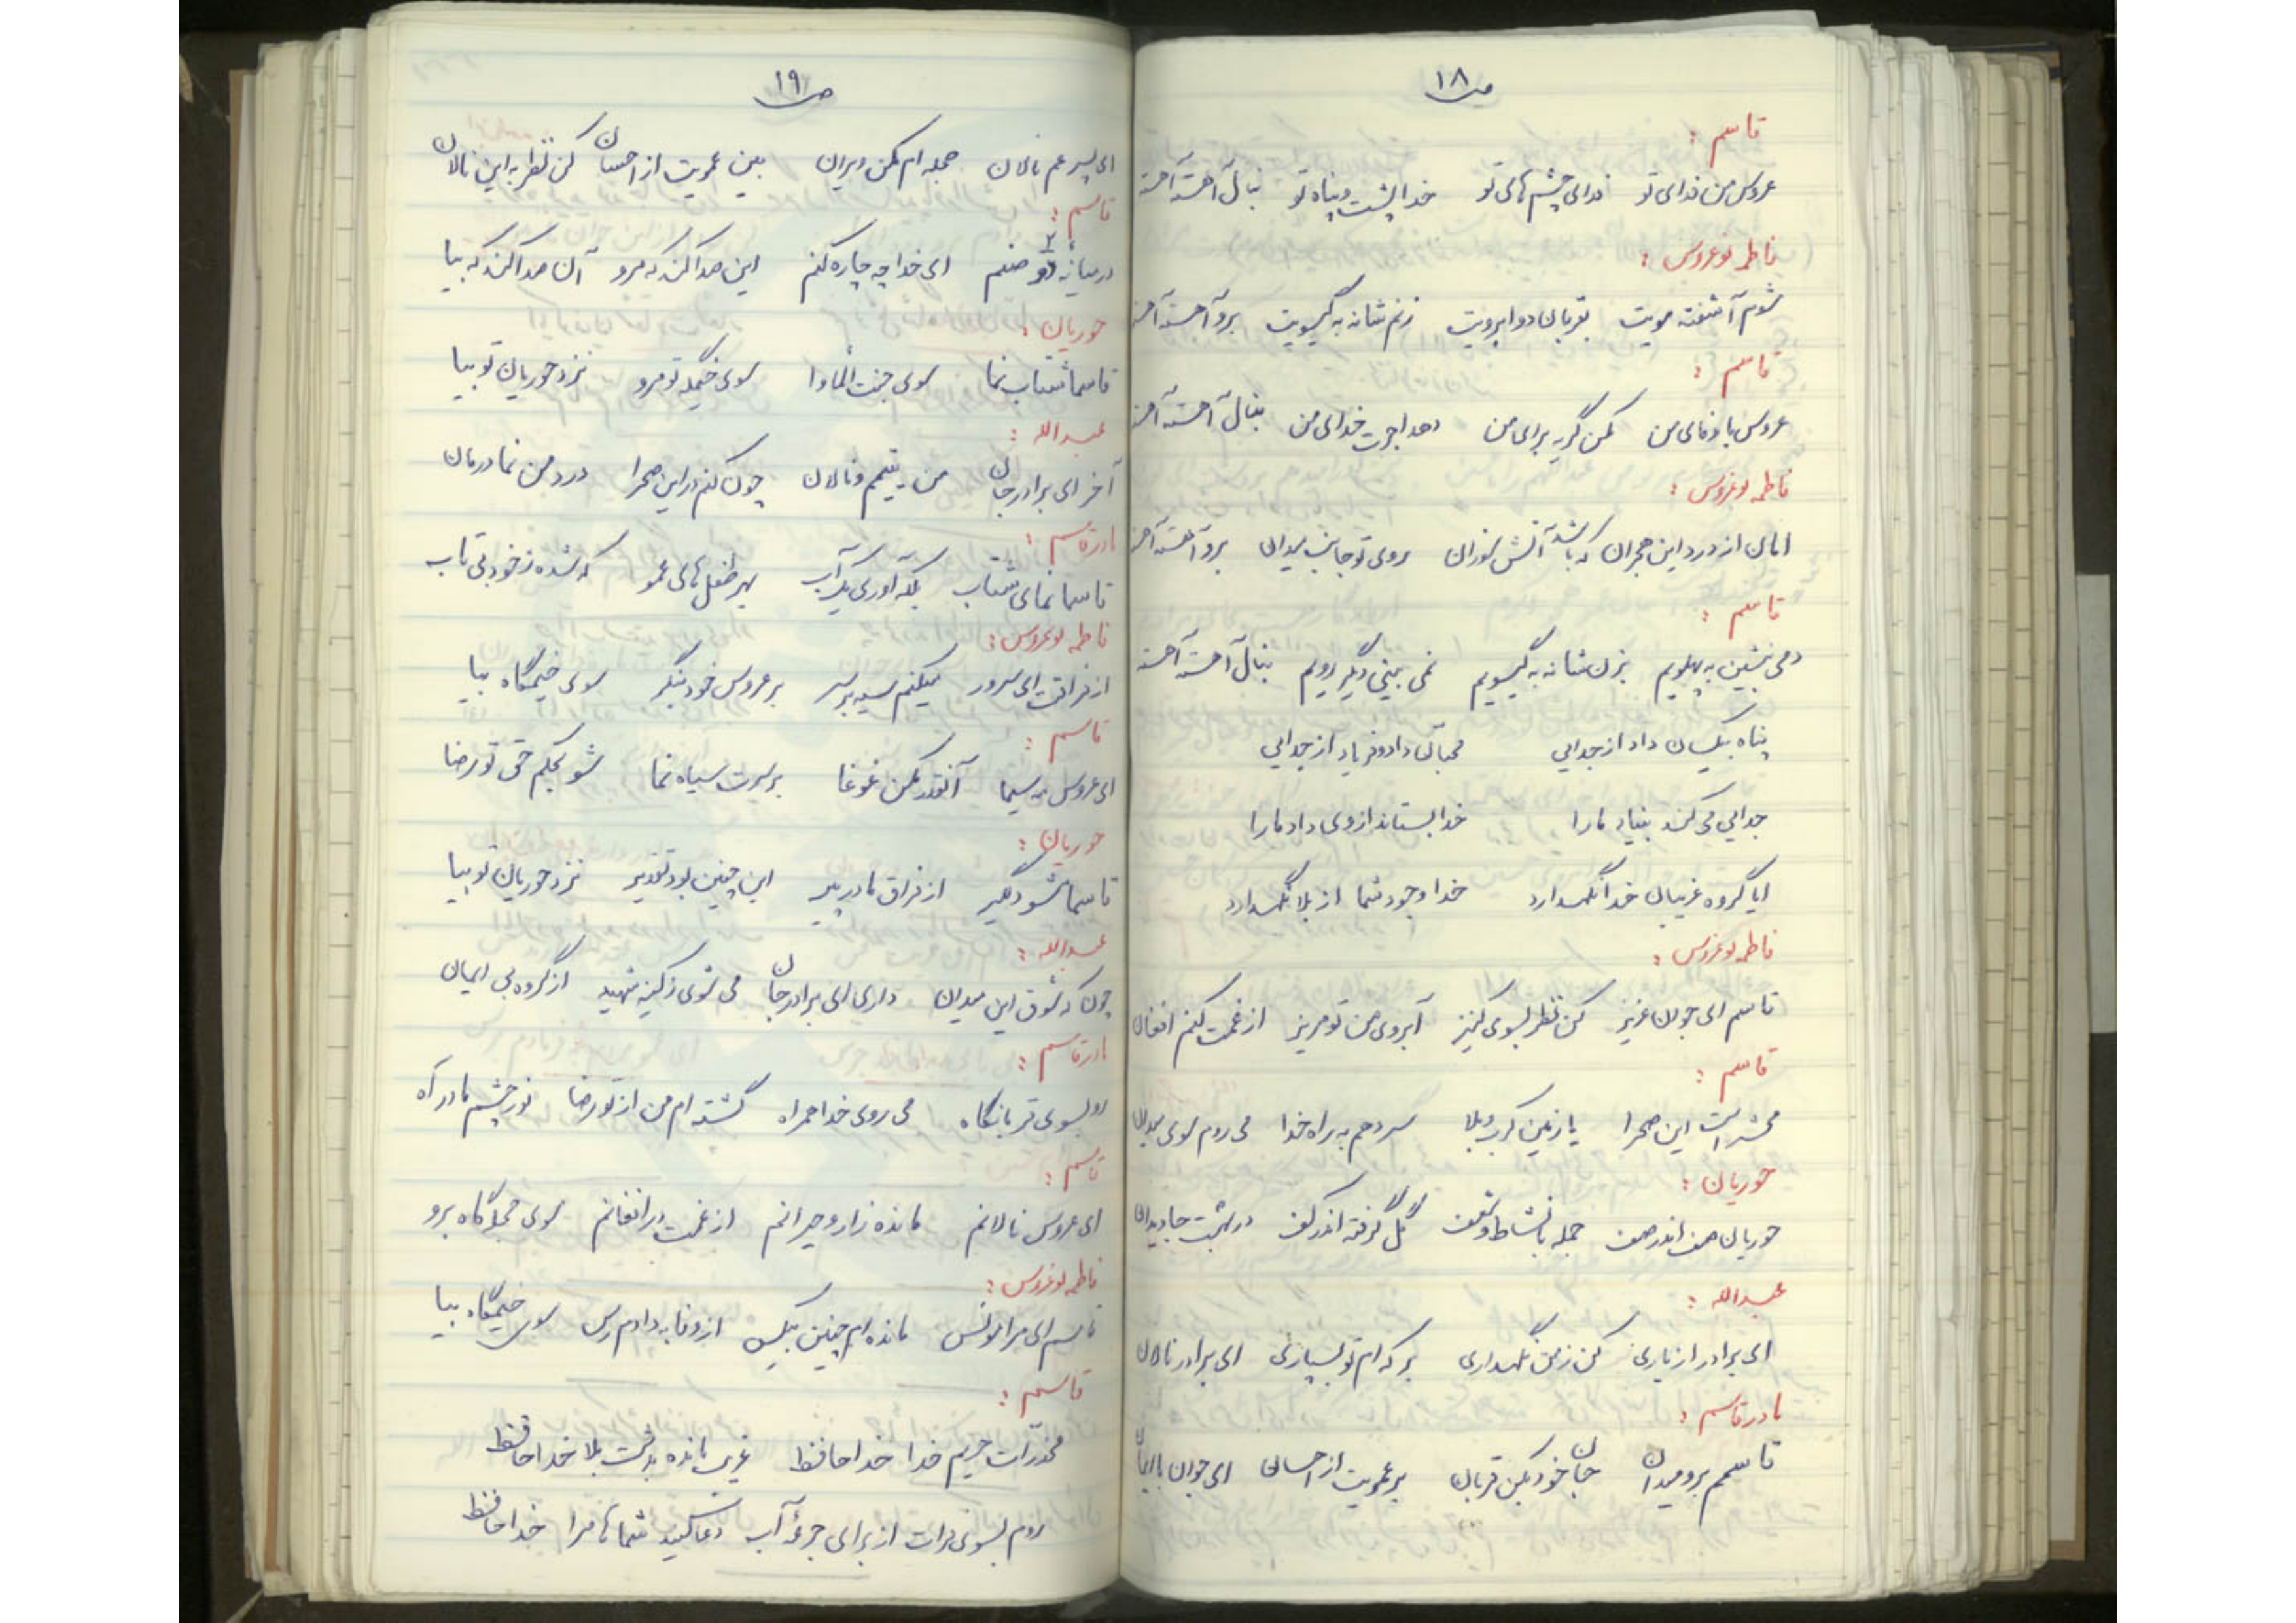 ص ۱۸
قاسم :
عروس من فدای تو فدای چشم های تو خدا پشت و پناه تو بنال آهسته آهسته
فاطمه نوعروس :
شوم آشفته مویت بقربان دو ابرویت زنم شانه به گیسویت برو آهسته آهسته
قاسم :
عروس با وفای من مکن گریه برای من دهد اجرت خدای من بنال آهسته آهسته
فاطمه نوعروس :
امان از درد این هجران که باشد آتش سوزان روی تو جانب میدان برو آهسته آهسته
قاسم :
دمی بنشین به پهلویم بزن شانه به گیسویم نمی بینی دگر رویم بنال آهسته آهسته
پناه بیکسان داد از جدایی محبان داد و فریاد از جدایی
جدایی می کند بنیاد ما را خدا بستاند از وی داد ما را
ایا گروه غریبان خدا نگهدارد خدا وجود شما از بلا نگهدارد
فاطمه نوعروس :
قاسم ای جوان عزیز کن نظر بسوی کنیز آبروی من تو مریز از غمت کنم افغان
قاسم :
محشر است این صحرا یا زمین کرب و بلا سر دهم به راه خدا می روم سوی میدان
حوریان :
حوریان صف اندر صف جمله با نشاط و شعف گل گرفته اندر کف در بهشت جاویدان
عبدالله :
ای برادر از یاری کن ز من نگهداری بر که ام تو بسپاری ای برادر نالان
مادر قاسم :
قاسمم برو میدان جان خود بکن قربان بر عمویت از احسان ای جوان با ایمان
ص ۱۹
ای پسر عم نالان حجله ام مکن ویران بین عمویت از احسان کن نظر به این نالان
قاسم :
در میانه ۲ دو صنم ای خدا چه چاره کنم این صدا کند که مرو آن صدا کند که بیا
حوریان :
قاسما شتاب نما سوی جنت المأوا سوی خیمگه تو مرو نزد حوریان تو بیا
عبدالله :
آخر ای برادر جان من یتیمم و نالان چون کنم در این صحرا درد من نما درمان
مادر قاسم :
قاسما نمای شتاب بلکه آوری یک آب بهر طفل های عمو که شده ز خود بی تاب
فاطمه نوعروس :
از فراقت ای سرور میکنم سیه بر سر بر عروس خود بنگر سوی خیمگاه بیا
قاسم :
ای عروس مه سیما آنقدر مکن غوغا بر سرت سیاه نما شو بحکم حق تو رضا
حوریان :
قاسما مشو دلگیر از فراق مادر پیر این چنین بود تقدیر نزد حوریان تو بیا
عبدالله :
چون که شوق این میدان داری ای برادر جان می شوی ز کینه شهید از گروه بی ایمان
مادر قاسم :
رو بسوی قربانگاه می روی خدا همراه گشته ام من از تو رضا نور چشم مادر آه
قاسم :
ای عروس نالانم مانده زار و حیرانم از غمت در افغانم سوی حجلگاه برو
فاطمه نوعروس :
قاسم ای مرا مونس مانده ام چنین بیکس از وفا به دادم رس سوی خیمگاه بیا
قاسم :
مخدرات حریم خدا خدا حافظ غریب مانده بدشت بلا خدا حافظ
روم بسوی فرات از برای جرعه آب دعا کنید شماها مرا خدا حافظ